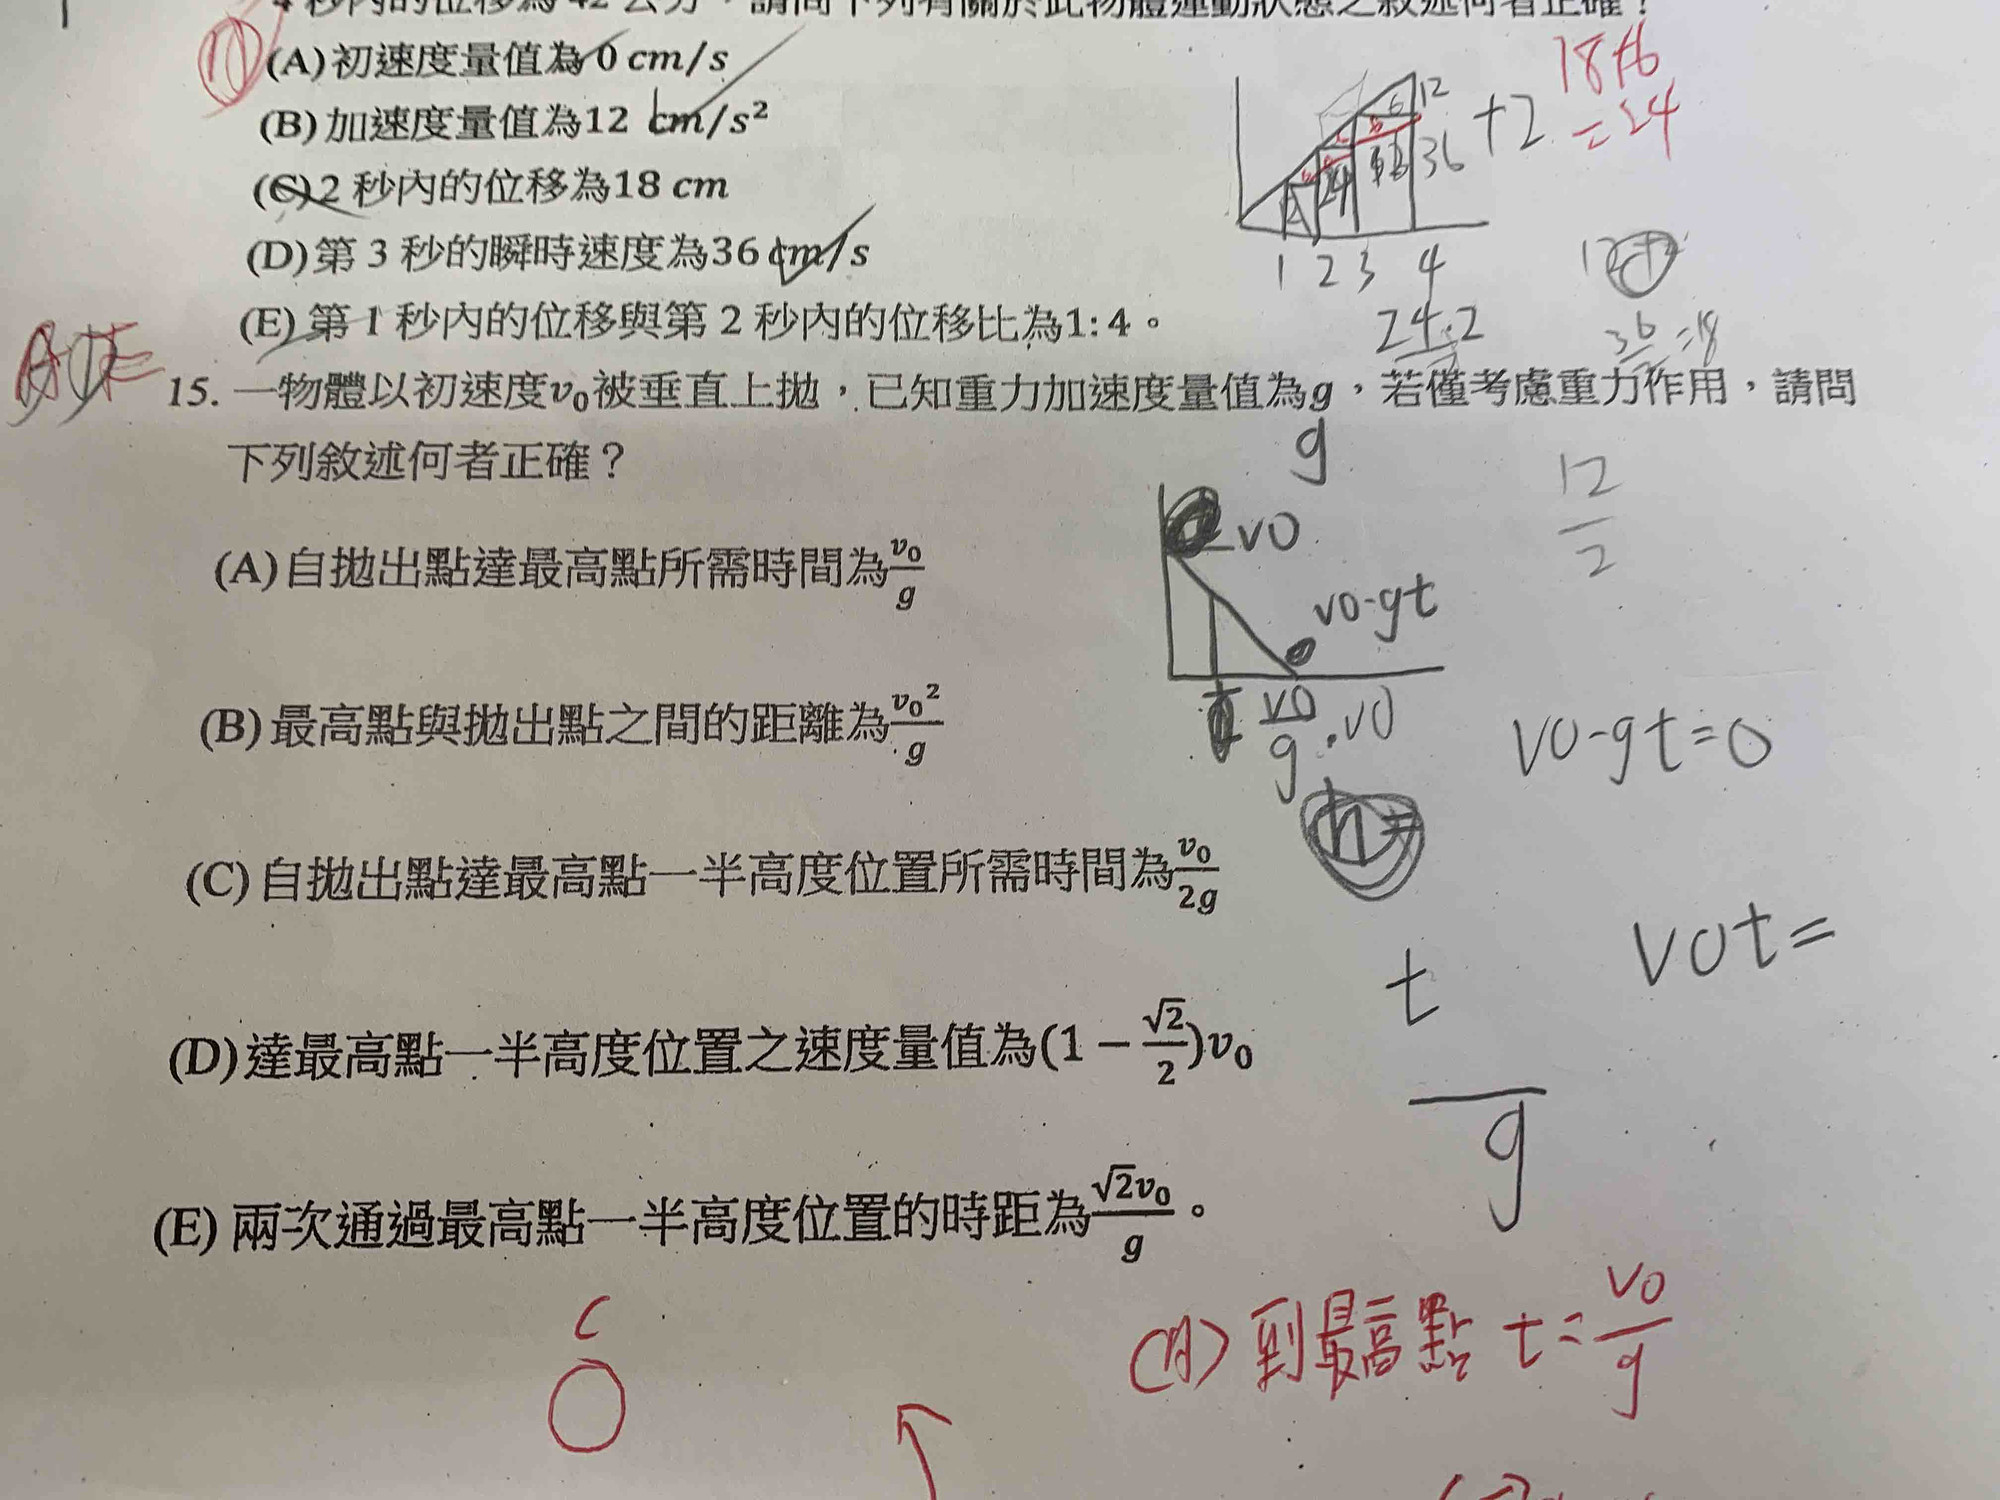 4 秒內的位移為 42 公分，請問下列有關於此物體運動狀態之敘述何者正確？
(A) 初速度量值為 0 cm/s
(B) 加速度量值為12 cm/s²
(C) 2 秒內的位移為18 cm
(D) 第 3 秒的瞬時速度為36 cm/s
(E) 第 1 秒內的位移與第 2 秒內的位移比為1: 4。
18+6
=24
12
36
+2
24
1 2 3 4
24.2
36 =18
15. 一物體以初速度v₀被垂直上拋，已知重力加速度量值為g，若僅考慮重力作用，請問
下列敘述何者正確？
g
12/2
(A) 自拋出點達最高點所需時間為v₀/g
v0
v0-gt
(B) 最高點與拋出點之間的距離為v₀²/g
v0/g .v0
v0-gt=0
h=
(C) 自拋出點達最高點一半高度位置所需時間為v₀/2g
v0t=
t
(D) 達最高點一半高度位置之速度量值為(1 − √2/2)v₀
g
(E) 兩次通過最高點一半高度位置的時距為√2v₀/g。
(A) 到最高點 t=v0/g